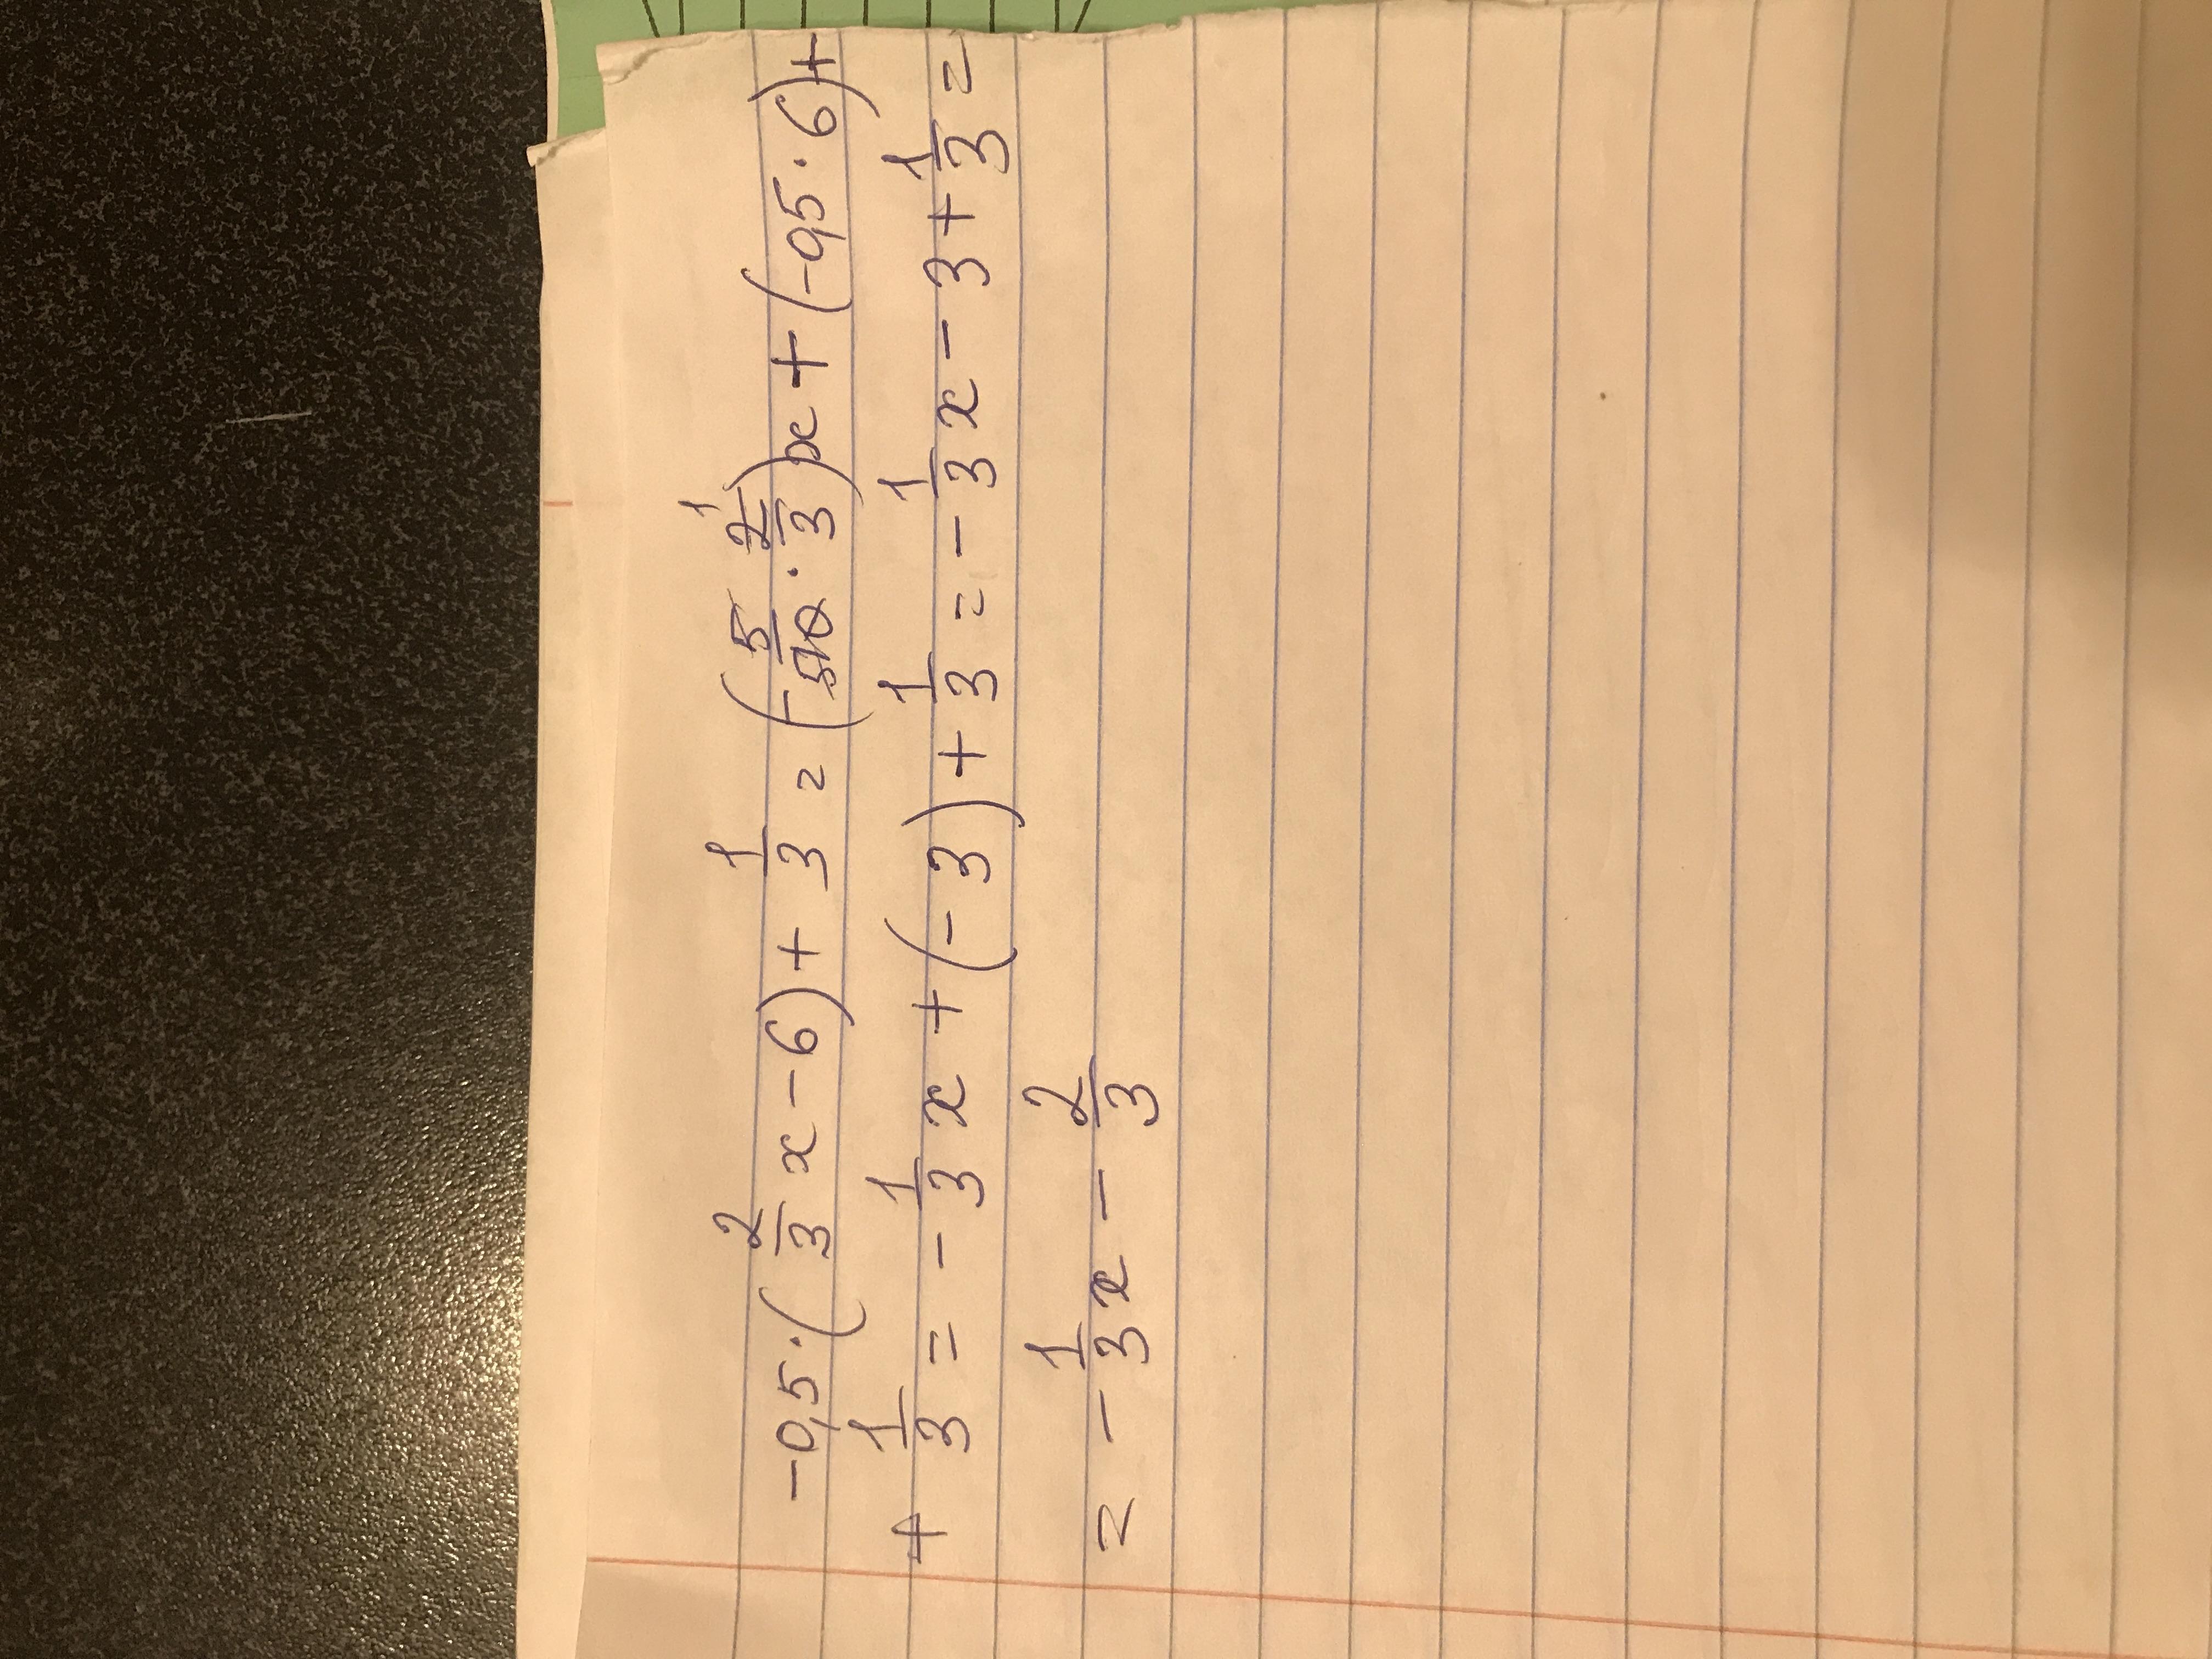 -0,5·(2/3 x - 6) + 1/3 = (- 5/10 5 · 2/3 1) x + (-0,5 · 6) +
+ 1/3 = - 1/3 x + (-3) + 1/3 = - 1/3 x - 3 + 1/3 =
= - 1/3 x - 2/3